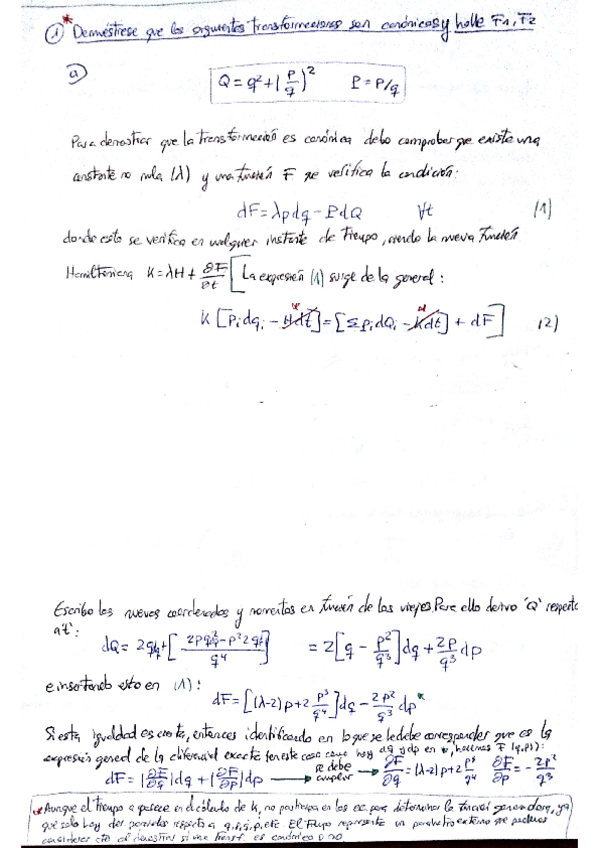 1 * Demuéstrese que las siguientes transformaciones son canónicas y halle F1, F2
a)
Q = q² + (p/q)²     P = p/q
Para demostrar que la transformación es canónica debo comprobar que existe una
constante no nula (λ) y una función F que verifica la condición:
dF = λpdq - PdQ     ∀t     (1)
donde esto se verifica en cualquier instante de tiempo, siendo la nueva función
Hamiltoniana K = λH + ∂F/∂t [La expresión (1) surge de la general:
K [p_i dq_i - Hdt] = [Σ p_i dQ_i - Kdt] + dF]     (2)
Escribo las nuevas coordenadas y momentos en función de las viejas. Para ello derivo 'Q' respecto
a 't':
dQ = 2q + [2pq² - p² 2q / q⁴] = 2[q - p²/q³]dq + 2p/q³ dp
e insertando esto en (1):
dF = [(λ-2)p + 2 p³/q⁴]dq - 2p²/q³ dp *
Si esta igualdad es cierta, entonces identificando en lo que se le debe corresponder que es la
expresión general de la diferencial exacta (en este caso como hay dq y dp en *, hacemos F(q,p)):
dF = (∂F/∂q)dq + (∂F/∂p)dp → se debe cumplir → ∂F/∂q = (λ-2)p + 2 p³/q⁴   ∂F/∂p = -2p²/q³
* Aunque el tiempo aparece en el cálculo de K, no participa en las ec. para determinar la función generadora, ya
que solo hay der. parciales respecto a q, p, etc. El tiempo representa un parámetro externo que podemos
considerar cte al demostrar si una transf. es canónica o no.